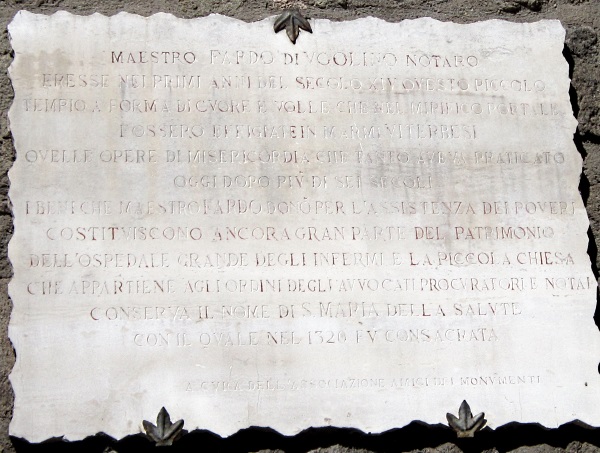 MAESTRO FARDO DI VGOLINO NOTARO
ERESSE NEI PRIMI ANNI DEL SECOLO XIV QVESTO PICCOLO
TEMPIO A FORMA DI CVORE E VOLLE CHE NEL MIRIFICO PORTALE
FOSSERO EFFIGIATE IN MARMI VITERBESI
QVELLE OPERE DI MISERICORDIA CHE TANTO AVEVA PRATICATO
OGGI DOPO PIV DI SEI SECOLI
I BENI CHE MAESTRO FARDO DONÒ PER L'ASSISTENZA DEI POVERI
COSTITVISCONO ANCORA GRAN PARTE DEL PATRIMONIO
DELL'OSPEDALE GRANDE DEGLI INFERMI E LA PICCOLA CHIESA
CHE APPARTIENE AGLI ORDINI DEGLI AVVOCATI PROCVRATORI E NOTAI
CONSERVA IL NOME DI S. MARIA DELLA SALVTE
CON IL QVALE NEL 1320 FV CONSACRATA
A CVRA DELL'ASSOCIAZIONE AMICI DEI MONVMENTI